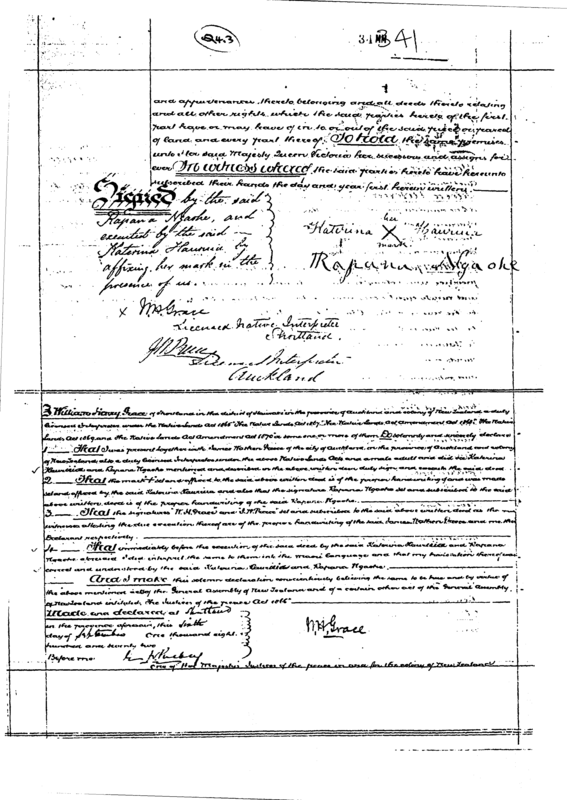 243
41
and appurtenances thereto belonging and all deeds thereto relating
and all other rights which the said parties hereto of the first
part have or may have of in to or out of the said piece or parcel
of land and every part thereof. To hold the same premises
unto Her said Majesty Queen Victoria her successors and assigns for
ever In witness whereof the said parties hereto have hereunto
subscribed their hands the day and year first herein written
Signed by the said
Rapana Ngaohe, and
executed by the said
Katerina Hauruia by
affixing her mark in the
presence of us.
Katerina X Hauruia
her
mark
Rapana Ngaohe
x W H Grace
Licensed Native Interpreter
Shortland.
Licensed Interpreter
Auckland
I William Henry Grace of Shortland in the district of Hauraki in the province of Auckland and colony of New Zealand a duly
licensed Interpreter under the Native Lands Act 1865 The Native Lands Act 1867 The Native Lands Act Amendment Act 1868 The Native
Lands Act 1869 and the Native Lands Act Amendment Act 1870 or some one or more of them Do solemnly and sincerely declare
1 That I was present together with James Nathan of the city of Auckland, in the province of Auckland and colony
of New Zealand also a duly licensed Interpreter under the above Native Lands Acts and a male adult and did see Katerina
Hauruia and Rapana Ngaohe mentioned and described in the above written deed duly sign and execute the said deed
2 That the mark set and affixed to the said above written deed is of the proper handwriting of and was made
and affixed by the said Katerina Hauruia and also that the signature Rapana Ngaohe set and subscribed to the said
above written deed is of the proper handwriting of the said Rapana Ngaohe.
3 That the signatures W. H. Grace and set and subscribed to the said above written deed as the
witnesses attesting the due execution thereof are of the proper handwriting of the said James Nathan and me the
Declarant respectively.
4 That immediately before the execution of the said deed by the said Katerina Hauruia and Rapana
Ngaohe aforesaid I did interpret the same to them into the Maori language and that my translation thereof was
correct and understood by the said Katerina Hauruia and Rapana Ngaohe.
And I make this solemn declaration conscientiously believing the same to be true and by virtue of
the above mentioned Acts of the General Assembly of New Zealand and of a certain other act of the General Assembly
of New Zealand intituled The Justices of the peace Act 1866
Made and declared at Shortland
in the province aforesaid, this Sixth
day of One thousand eight
hundred and seventy two
W H Grace
Before me
One of Her Majesty's Justices of the peace in and for the colony of New Zealand